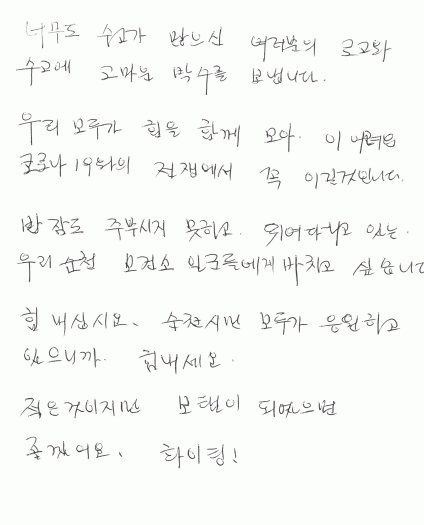 너무도 수고가 많으신 여러분의 로고와
수고에 고마운 박수를 보냅니다.
우리 모두가 힘을 합께 모아. 이 어려운
코로나 19와의 전쟁에서 꼭 이길것입니다.
밤 잠도 주무시지 못하고. 뛰여다니고 있는.
우리 순천 보건소 일꾼들에게 바치고 싶습니다
힘 내십시요. 순천시민 모두가 응원하고
있으니까. 힘내세요.
적은것이지만 보탬이 되였으면
좋겠어요. 화이팅!